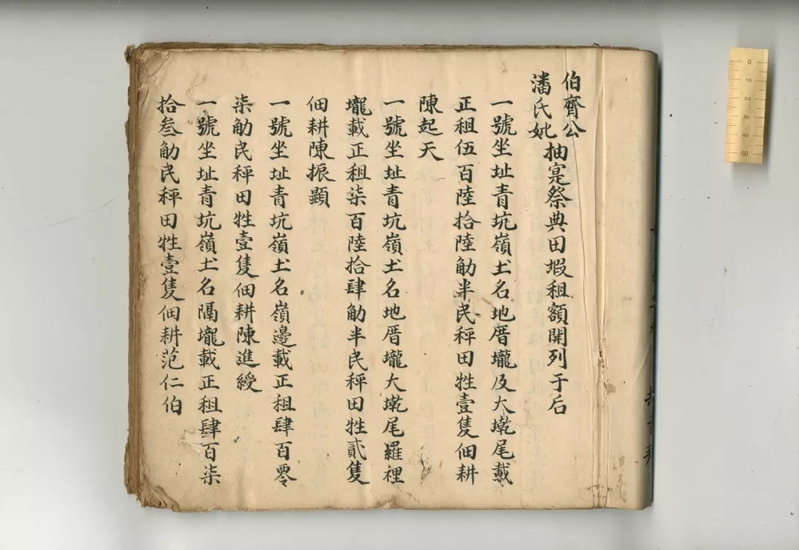 伯齊公
潘氏妣
抽寔祭典田塅租額開列于后
一號坐址青坑嶺土名地厝壠及大墘尾載
正租伍百陸拾陸觔半民秤田牲壹隻佃耕
陳起天
一號坐址青坑嶺土名地厝壠大墘尾羅裡
壠載正租柒百陸拾肆觔半民秤田牲貳隻
佃耕陳振顯
一號坐址青坑嶺土名嶺邊載正租肆百零
柒觔民秤田牲壹隻佃耕陳進綬
一號坐址青坑嶺土名隔壠載正租肆百柒
拾叁觔民秤田牲壹隻佃耕范仁伯